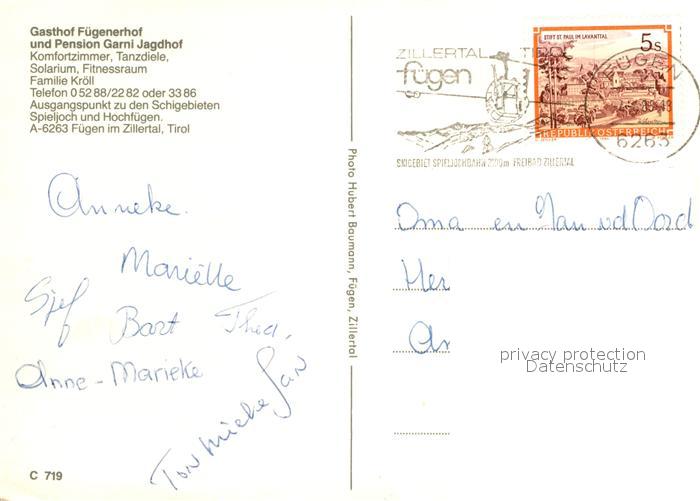 Gasthof Fügenerhof
und Pension Garni Jagdhof
Komfortzimmer, Tanzdiele,
Solarium, Fitnessraum
Familie Kröll
Telefon 0 52 88/22 82 oder 33 86
Ausgangspunkt zu den Schigebieten
Spieljoch und Hochfügen.
A-6263 Fügen im Zillertal, Tirol
Anneke.
Mariëlle
Sjef Bart Thea,
Anne-Marieke
Ton Mieke Jan
C 719
Photo Hubert Baumann, Fügen, Zillertal
ZILLERTAL TIROL
fügen
SKIGEBIET SPIELJOCHBAHN 2100m FREIBAD ZILLERTAL
STIFT ST. PAUL IM LAVANTTAL
5 S
REPUBLIK ÖSTERREICH
FÜGEN
6263
Oma en Jan vd Oord
Her
Ar
privacy protection
Datenschutz